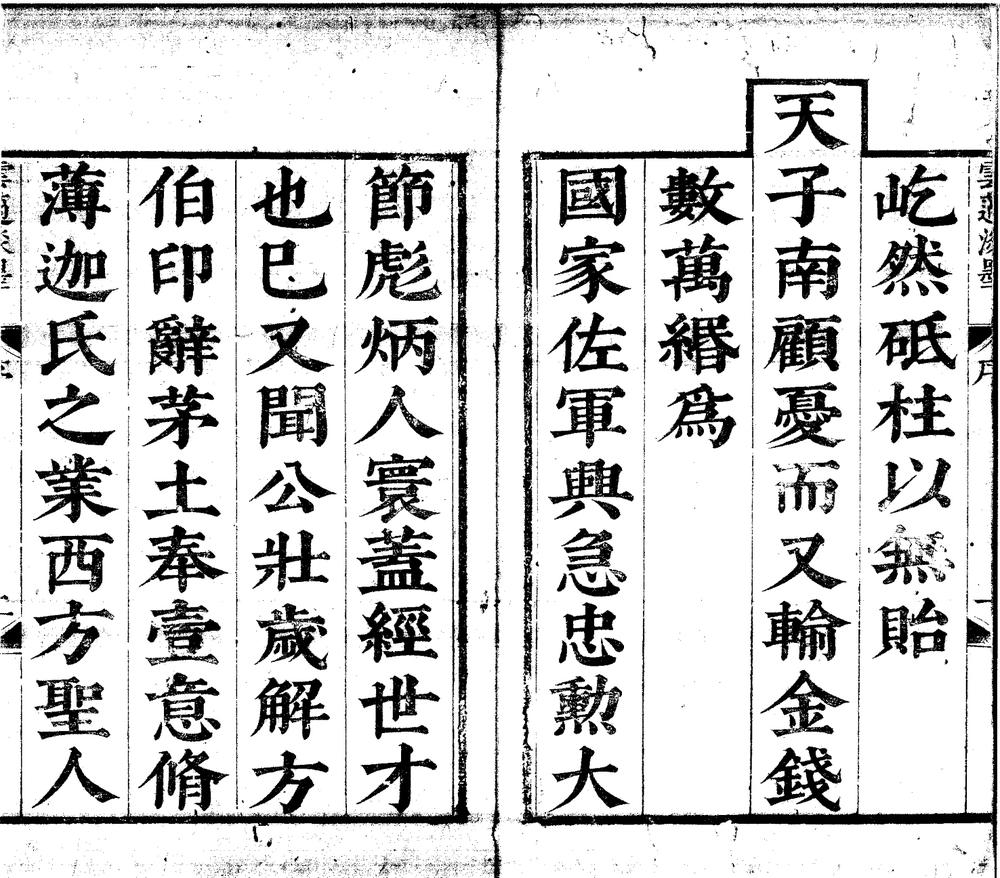 屹然砥柱以無貽
天子南顧憂而又輸金錢
數萬緡爲
國家佐軍興急忠勲大
節彪炳人寰蓋經世才
也巳又聞公壯歲解方
伯印辭茅土奉壹意脩
薄迦氏之業西方聖人